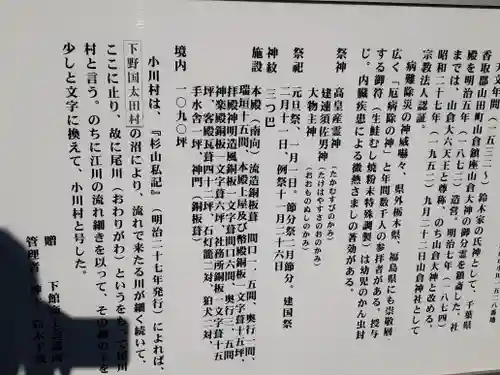 天文年間(一五三二~)鈴木家の氏神として、千葉県
香取郡山田町山倉鎮座山倉大神の御分霊を勧斎した。社
殿を明治五年(一八七二)造営。明治七年(一八七四)
までは、山倉大六天王と尊称、のち山倉大神と改める。
昭和二十七年(一九五二)九月二十二日山倉神社として
宗教法人認証。
病難除災の神威嚇々、県外栃木県、福島県にも崇敬厨
広く「厄病除の神」と年間数千人の参拝者がある。授与
する御符(生鮭むし焼粉末特殊調製)は幼児のかん虫封
じ。内臓疾患による微熱さましの著効がある。
祭神 高皇産霊神(たかむすびのかみ)
建速須佐男神(たけはやすさのおのかみ)
大物主神(おおものぬしのかみ)
祭祀 元旦祭、一月一日。節分祭二月節分。建国祭
二月十一日、例祭十月二十六日
神紋 三つ巴
施設 本殿(南向)流造銅板葺 間口一.五間、奥行二間、
瑞垣十五間、本殿上屋及び幣殿銅板一文字葺十五坪、
拝殿神明造風銅板一文字葺間口六間、奥行三.五間
神楽殿銅板一文字葺六坪、社務所銅板一文字葺十五
坪、客殿瓦葺四十二坪、石灯籠二対、狛犬二対、
手水舎一坪、神門(銅板葺)
境内 一〇九〇坪
小川村は、『杉山私記』(明治二十七年発行)によれば、
下野国太田村の沼により、流れて来たる川が細く続いて、
ここに止り、故に尾川(おわりがわ)というをもって尾川
村と言う。のちに江川の流れ細きを以って、その
少しと文字に換えて、小川村と号した。
贈 下館
管理者 鈴木